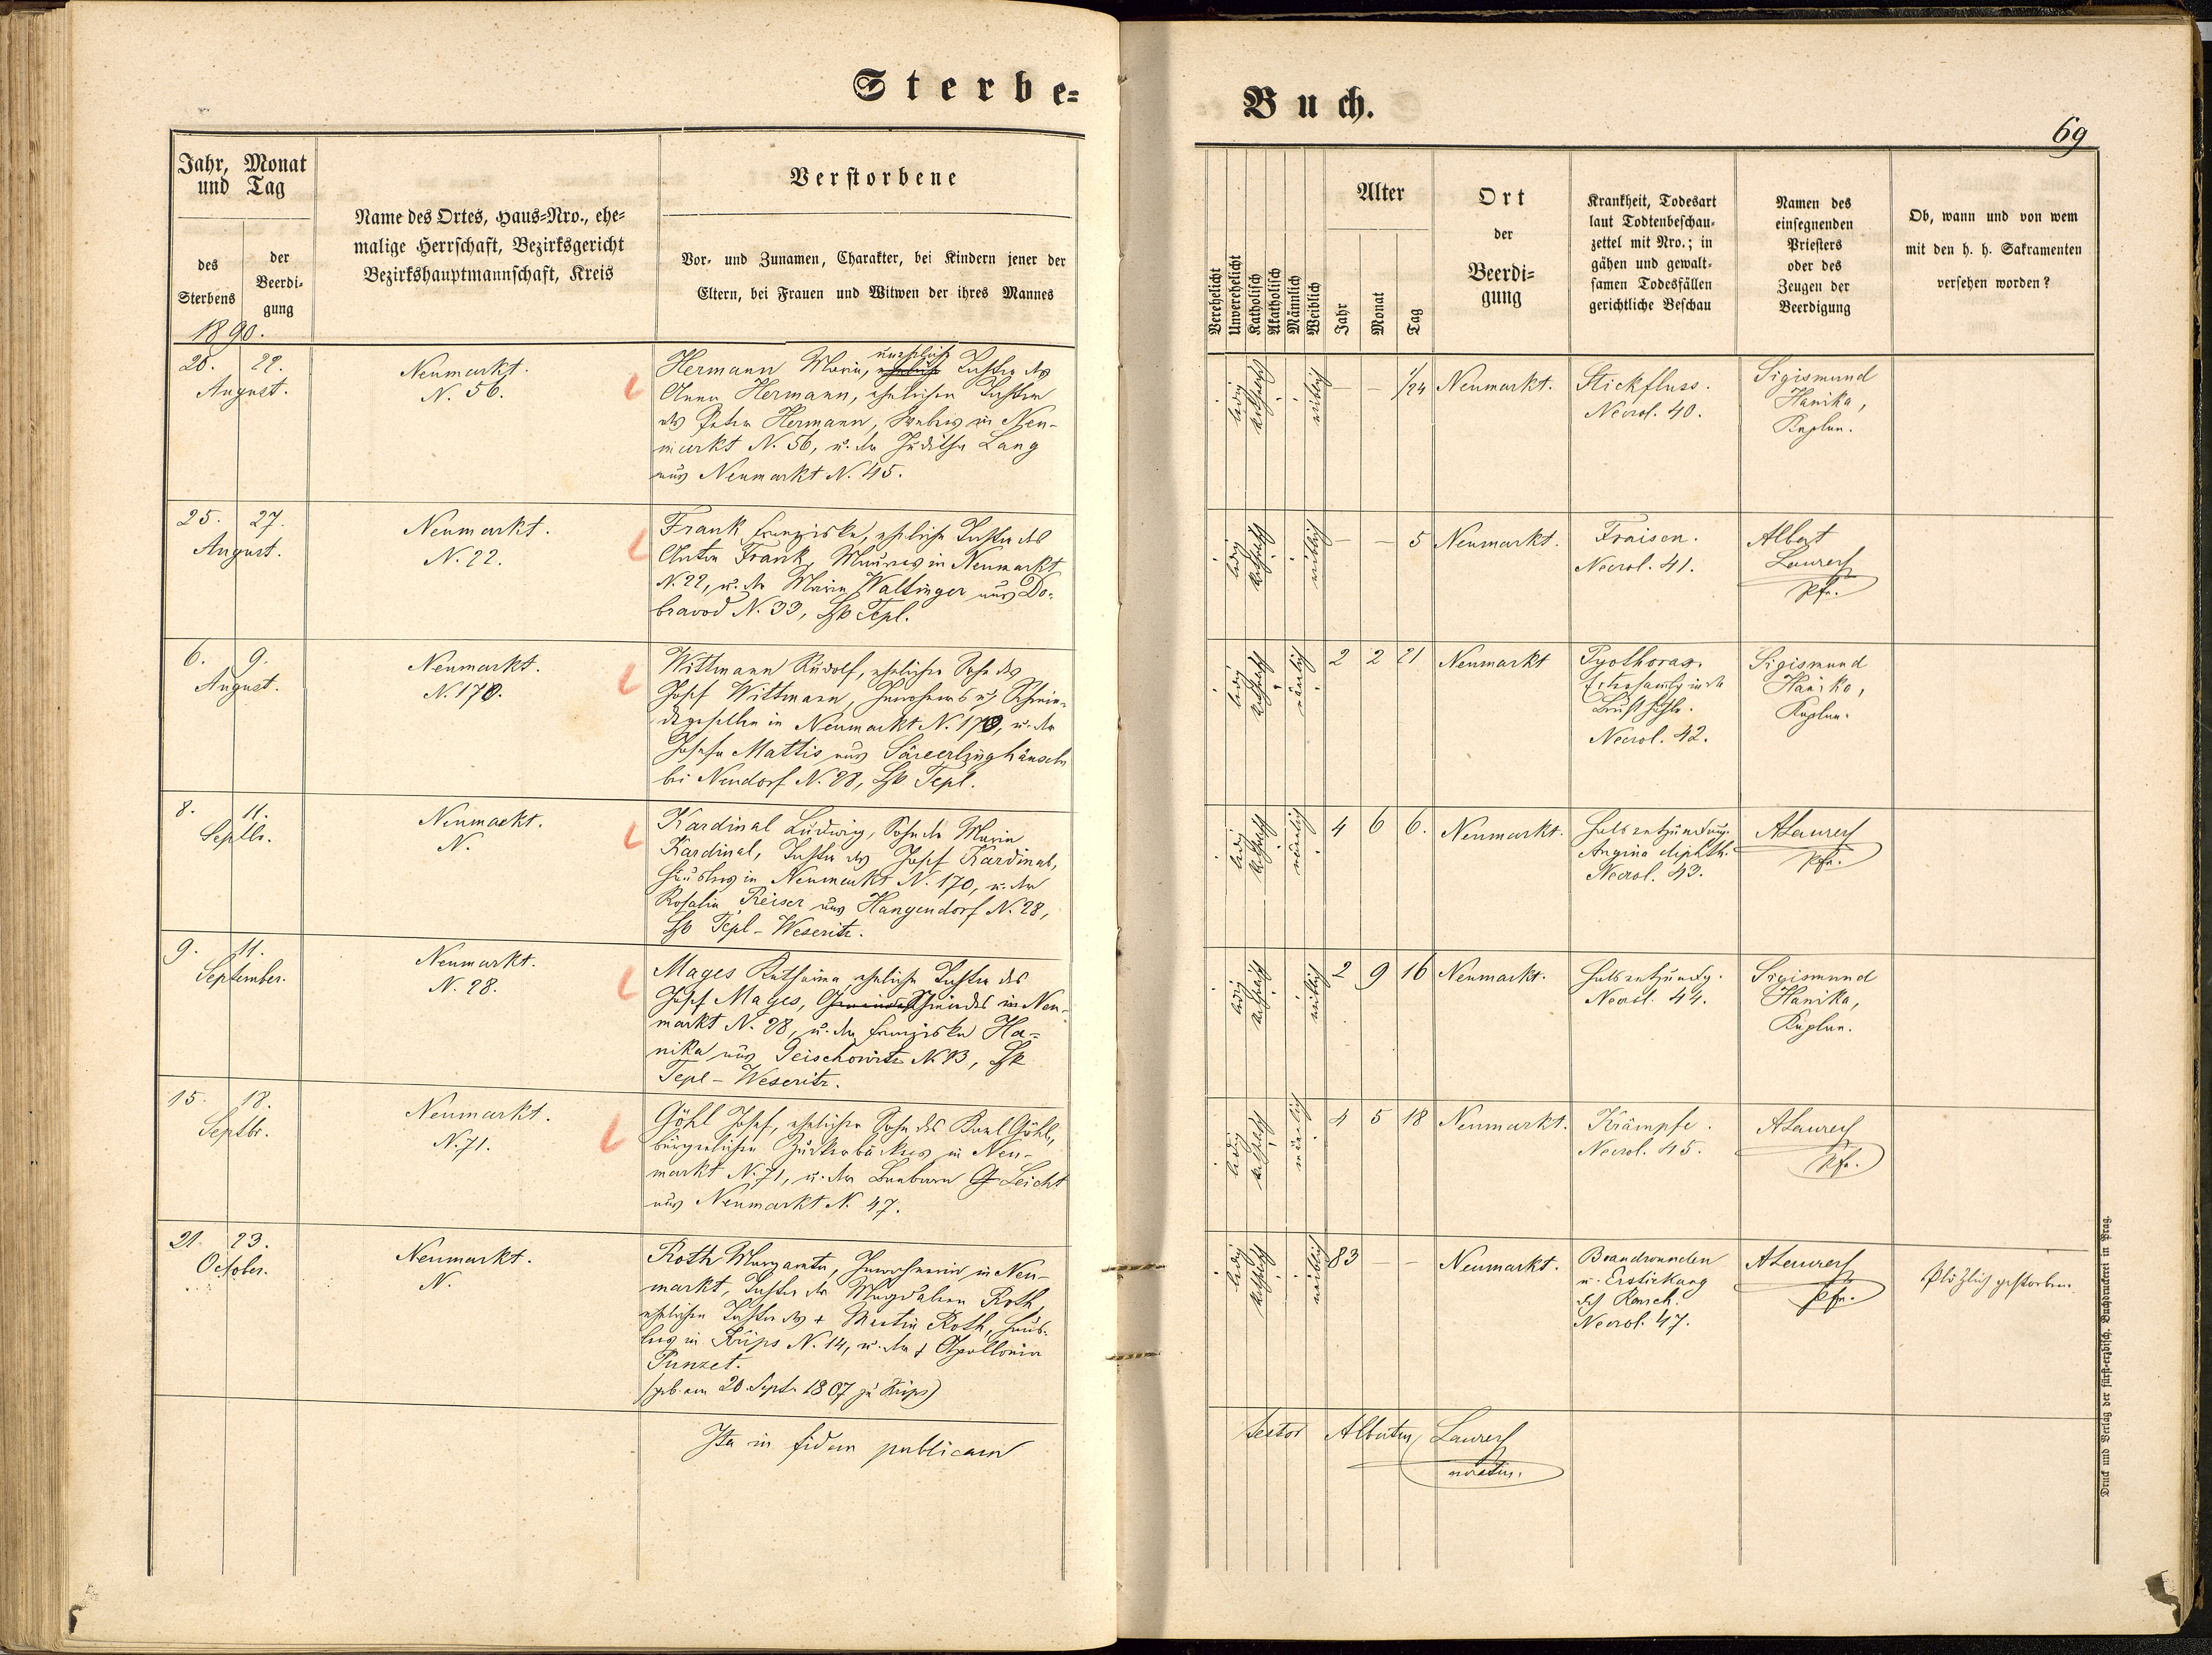 Sterbe=
Jahr, Monat
und Tag
des
Sterbens
der
Beerdi=
gung
1890.
Name des Ortes, Haus=Nro., ehe=
malige Herrschaft, Bezirksgericht
Bezirkshauptmannschaft, Kreis
Verstorbene
Vor= und Zunamen, Charakter, bei Kindern jener der
Eltern, bei Frauen und Witwen der ihres Mannes
20. 22.
August.
Neumarkt.
N. 56.
Hermann Maria, uneheliche Tochter der
Anna Hermann, ehelichen Tochter
des Peter Hermann, in Neu-
markt N. 56, u. der Juditha Lang
aus Neumarkt N. 45.
25. 27.
August.
Neumarkt.
N. 22.
Frank Franziska, eheliche Tochter des
Anton Frank, Maurers in Neumarkt
N. 22, u. der Maria Waltinger aus Do-
bravod N. 33, Bzk Tepl.
6. 9.
August.
Neumarkt.
N. 170.
Wittmann Rudolf, ehelicher Sohn des
Josef Wittmann, Inwohners u. Schmie-
degesellen in Neumarkt N. 170, u. der
Josefa Mattis aus
bei Neudorf N. 28, Bzk Tepl.
8. 11.
Septbr.
Neumarkt.
N.
Kardinal Ludwig, Sohn der Maria
Kardinal, Tochter des Josef Kardinal,
Häuslers in Neumarkt N. 170, u. der
Rosalia Reiser aus Hangendorf N. 28,
Bzk Tepl - Weseritz.
9. 11.
September.
Neumarkt.
N. 28.
Mages Katharina, eheliche Tochter des
Josef Mages, Schmiedes in Neu-
markt N. 28, u. der Franziska Ha-
nika aus Geischowitz N. 13, Bzk
Tepl - Weseritz.
15. 18.
Septbr.
Neumarkt.
N. 71.
Göhl Josef, ehelicher Sohn des Karl Göhl,
bürgerlichen Zuckerbäckers in Neu-
markt N. 71, u. der Barbara Leicht
aus Neumarkt N. 47.
21. 23.
October.
Neumarkt.
N.
Roth Margareta, Inwohnerin in Neu-
markt, Tochter der Magdalena Roth,
ehelichen Tochter des + Martin Roth, Häus-
lers in Kurips N. 14, u. der + Apollonia
Punzet.
(geb. am 20. Sept. 1807 zu)
Ita in fidem publicam
Buch.
69
Verehelicht
Unverehelicht
Katholisch
Akatholisch
Männlich
Weiblich
Alter
Jahr
Monat
Tag
Ort
der
Beerdi=
gung
Krankheit, Todesart
laut Todtenbeschau=
zettel mit Nro.; in
gähen und gewalt=
samen Todesfällen
gerichtliche Beschau
Namen des
einsegnenden
Priesters
oder des
Zeugen der
Beerdigung
Ob, wann und von wem
mit den h. h. Sakramenten
versehen worden?
ledig katholisch weiblich — — 1/24 Neumarkt.
Stickfluss.
Necrol. 40.
Sigismund
Hanika,
Kaplan.
ledig katholisch weiblich — — 5 Neumarkt.
Fraisen.
Necrol. 41.
Albert
Laurer
Pfr.
ledig katholisch männlich 2 2 21 Neumarkt
Pyothorax.
Brusthöhle.
Necrol. 42.
Sigismund
Hanika,
Kaplan.
ledig katholisch männlich 4 6 6. Neumarkt.
Halsentzündung.
Angina diphth.
Necrol. 43.
A Laurer
Pfr.
ledig katholisch weiblich 2 9 16 Neumarkt.
Halsentzündg.
Necrol. 44.
Sigismund
Hanika,
Kaplan.
ledig katholisch männlich 4 5 18 Neumarkt.
Krämpfe.
Necrol. 45.
A Laurer
Pfr.
ledig katholisch weiblich 83 — — Neumarkt.
Brandwunden
u. Erstickung
dch Rauch.
Necrol. 47.
A Laurer
Pfr.
Plötzlich gestorben.
testor Albertus Laurer
Druck und Verlag der fürst-erzbisch. Buchdruckerei in Prag.